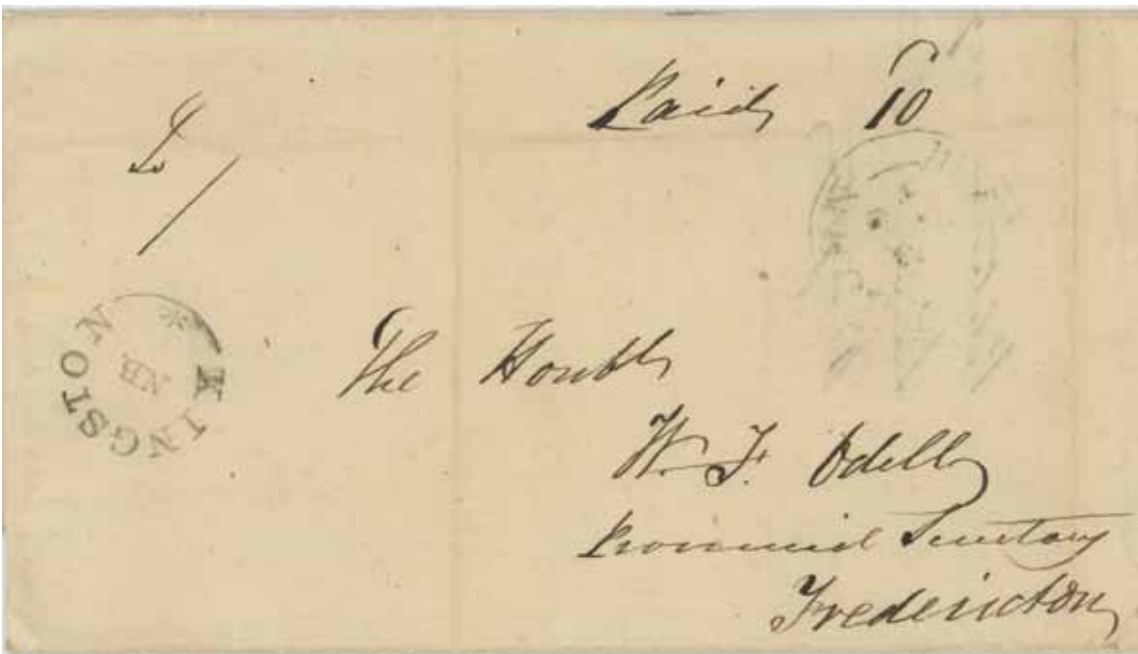 Paid 10
KINGSTON
N.B.
The Honble
W. F. Odell
Provincial Secretary
Fredericton